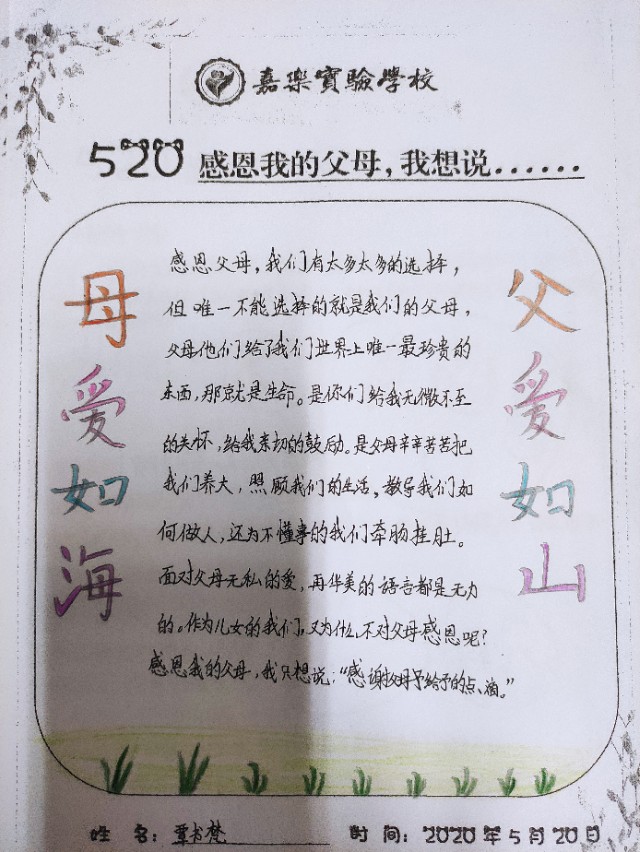 嘉樂實驗學校
520 感恩我的父母，我想说......
母爱如海
感恩父母，我们有太多太多的选择，
但唯一不能选择的就是我们的父母，
父母他们给了我们世界上唯一最珍贵的
东西，那就是生命。是你们给我无微不至
的关怀，给我亲切的鼓励。是父母辛辛苦苦把
我们养大，照顾我们的生活，教导我们如
何做人，还为不懂事的我们牵肠挂肚。
面对父母无私的爱，再华美的语言都是无力
的。作为儿女的我们，又为什么不对父母感恩呢？
感恩我的父母，我只想说：“感谢父母予给予的点、滴。”
父爱如山
姓 名：覃书梵 时 间：2020年5月20日